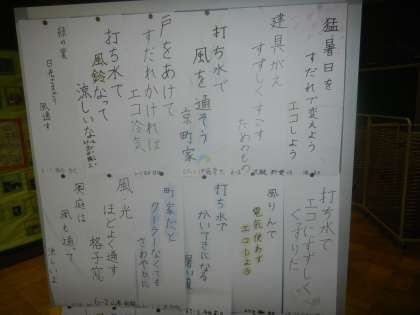 猛暑日を
すだれで変えよう
エコしよう
建具がえ
すずしくすごす
ためのもの
打ち水で
風を通そう
京町家
戸をあけて
すだれかければ
エコ冷気
打ち水で
風鈴なって
涼しいな
緑の葉
風通す
打ち水で
エコにすずしく
風りんで
電気使わず
エコしよう
打ち水で
かいてきになる
暑い夏
町家だと
クーラーなくても
さわやかに
風・光
ほどよく通す
格子窓
奥庭は
風も通って
涼しいよ